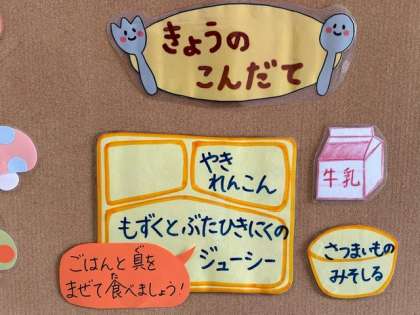 きょうの
こんだて
やき
れんこん
牛乳
もずくとぶたひきにくの
ジューシー
さつまいもの
みそしる
ごはんと具を
まぜて食べましょう！